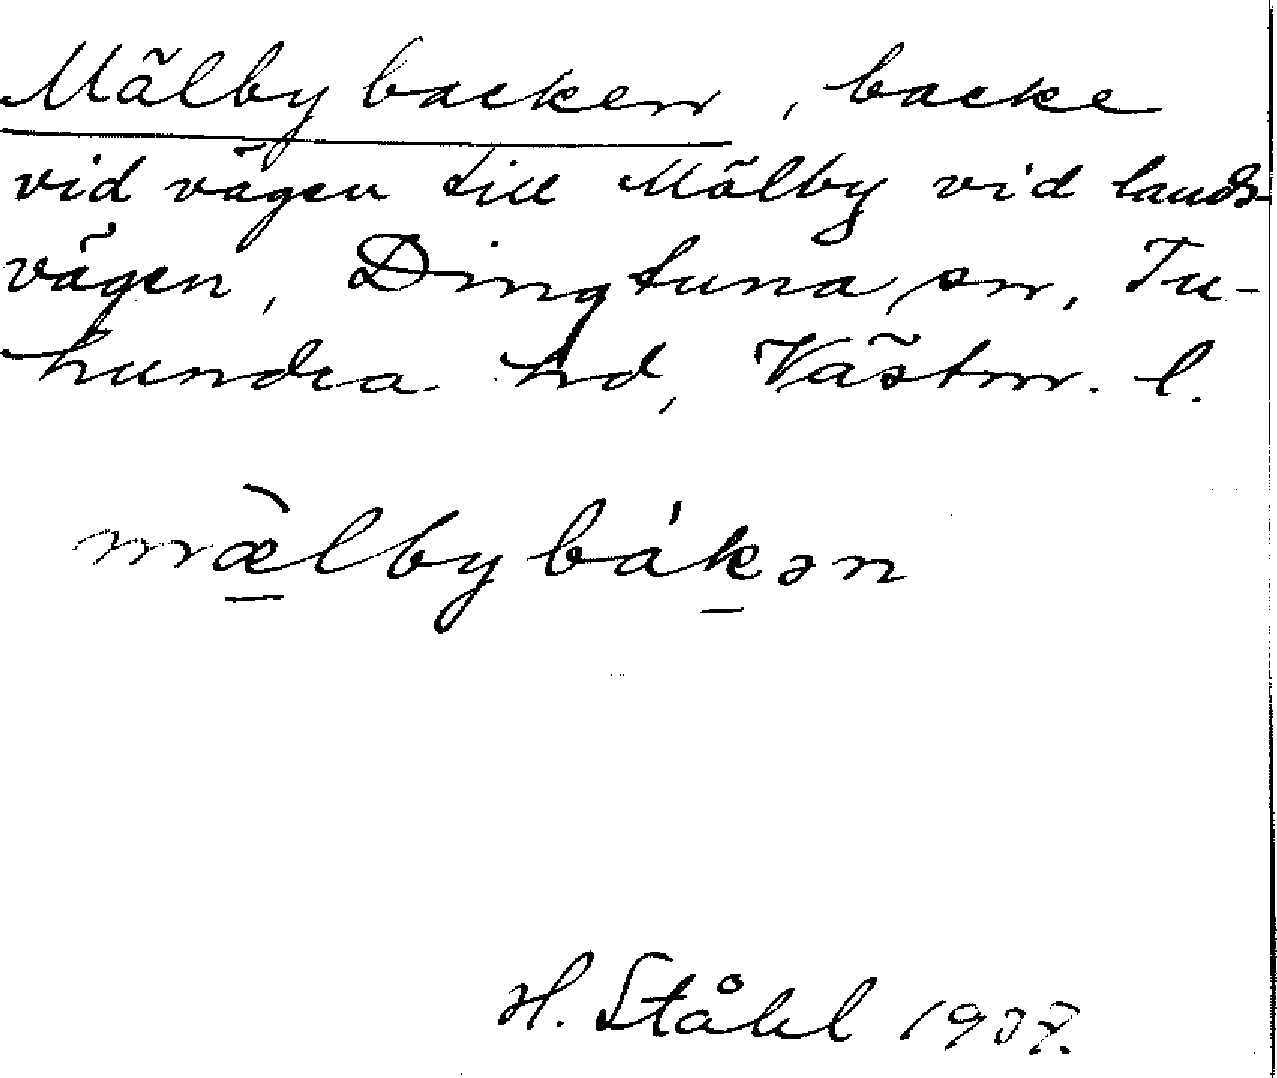 Mälbybacken, backe
vid vägen till Mälby vid lands-
vägen, Dingtuna sn, Tu-
hundra hd, Västm. l.
mæ̀lbybákən
H. Ståhl